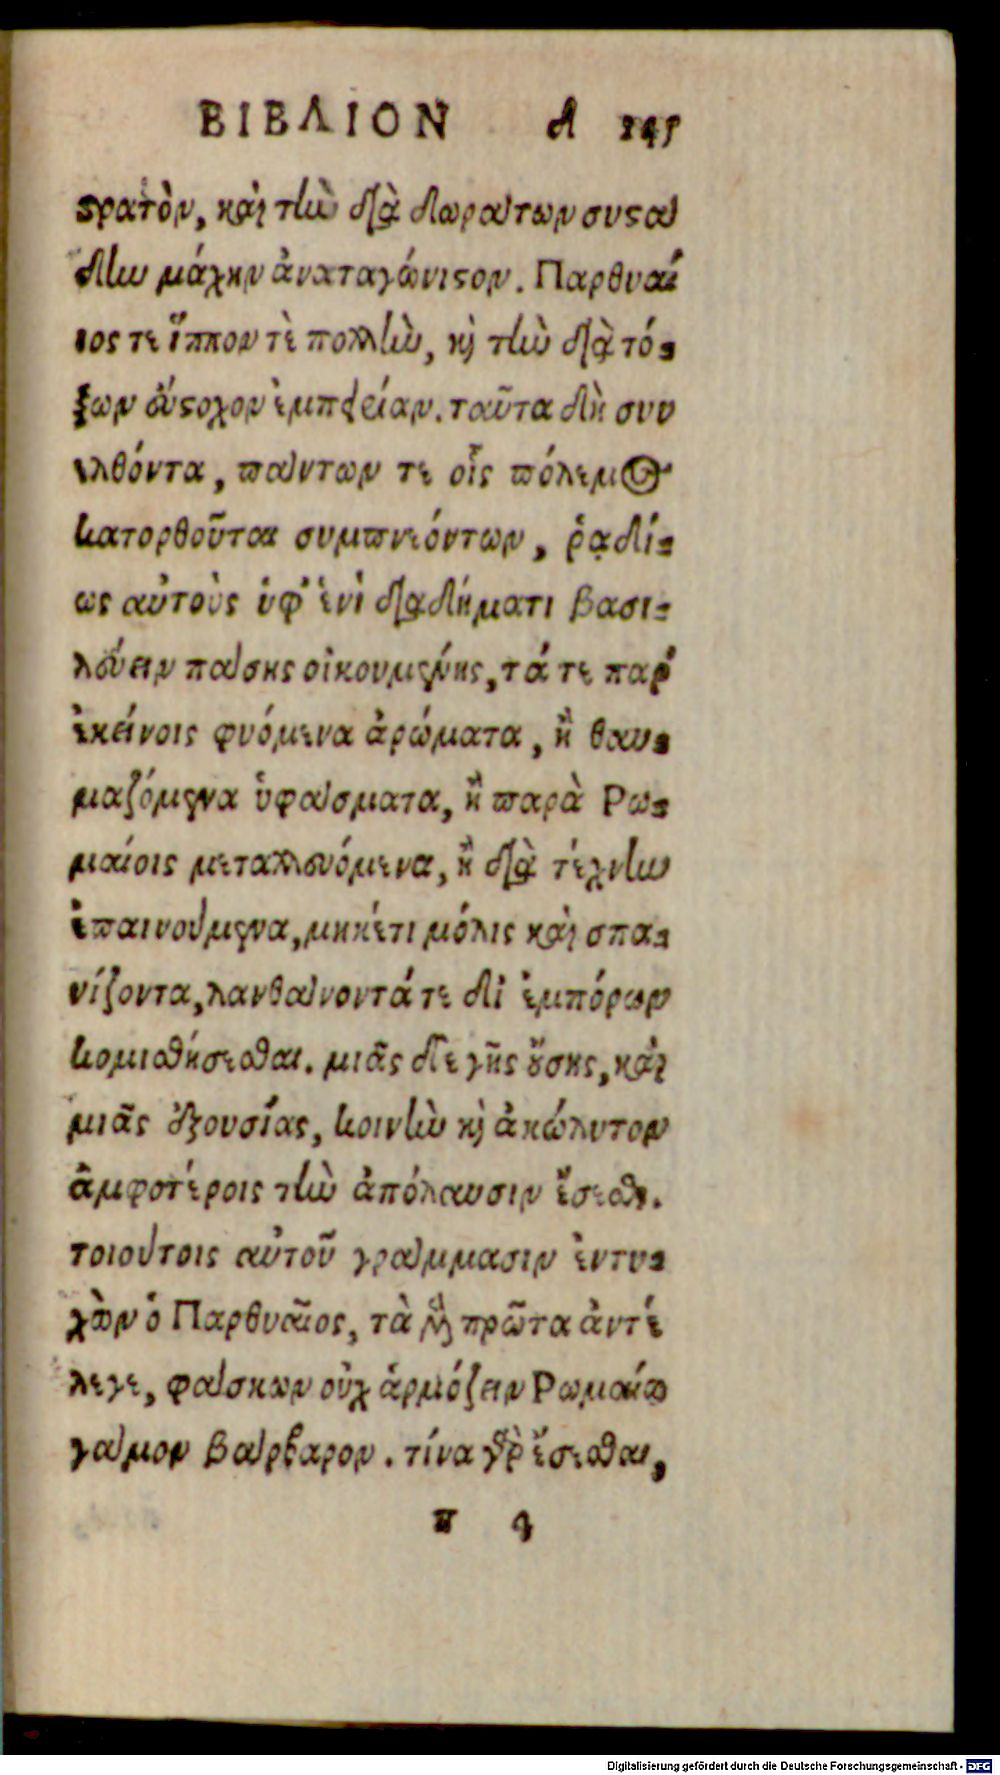 ΒΙΒΛΙΟΝ Δ 245
στρατὸν, καὶ τὴν διὰ δωράτων συστά
δην μάχην ἀναταγώνιστον. Παρθυαί
ιος τε ἵππον τὲ πολλὴν, καὶ τὴν διὰ τό-
ξων εὔστοχον ἐμπειρίαν. ταῦτα δὴ συν
ελθόντα, πάντων τε οἷς πόλεμος
κατορθοῦται συμπνεόντων, ῥᾳδί-
ως αὐτοὺς ὑφ' ἑνὶ διαδήματι βασι-
λεύειν πάσης οἰκουμένης, τά τε παρ'
ἐκείνοις φυόμενα ἀρώματα, ἢ θαυ-
μαζόμενα ὑφάσματα, ἢ παρὰ Ρω-
μαίοις μεταλλευόμενα, ἢ διὰ τέχνην
ἐπαινούμενα, μηκέτι μόλις καὶ σπα-
νίζοντα, λανθάνοντά τε δι ἐμπόρων
κομισθήσεσθαι. μιᾶς δε γῆς οὔσης, καὶ
μιᾶς ἐξουσίας, κοινὴν καὶ ἀκώλυτον
ἀμφοτέροις τὴν ἀπόλαυσιν ἔσεσθαι.
τοιούτοις αὐτοῦ γράμμασιν ἐντυ-
χὼν ὁ Παρθυαῖος, τὰ μὲν πρῶτα ἀντέ
λεγε, φάσκων οὐχ ἁρμόζειν Ρωμαίῳ
γάμον βάρβαρον. τίνα γὰρ ἔσεσθαι,
π 4
Digitalisierung gefördert durch die Deutsche Forschungsgemeinschaft - DFG